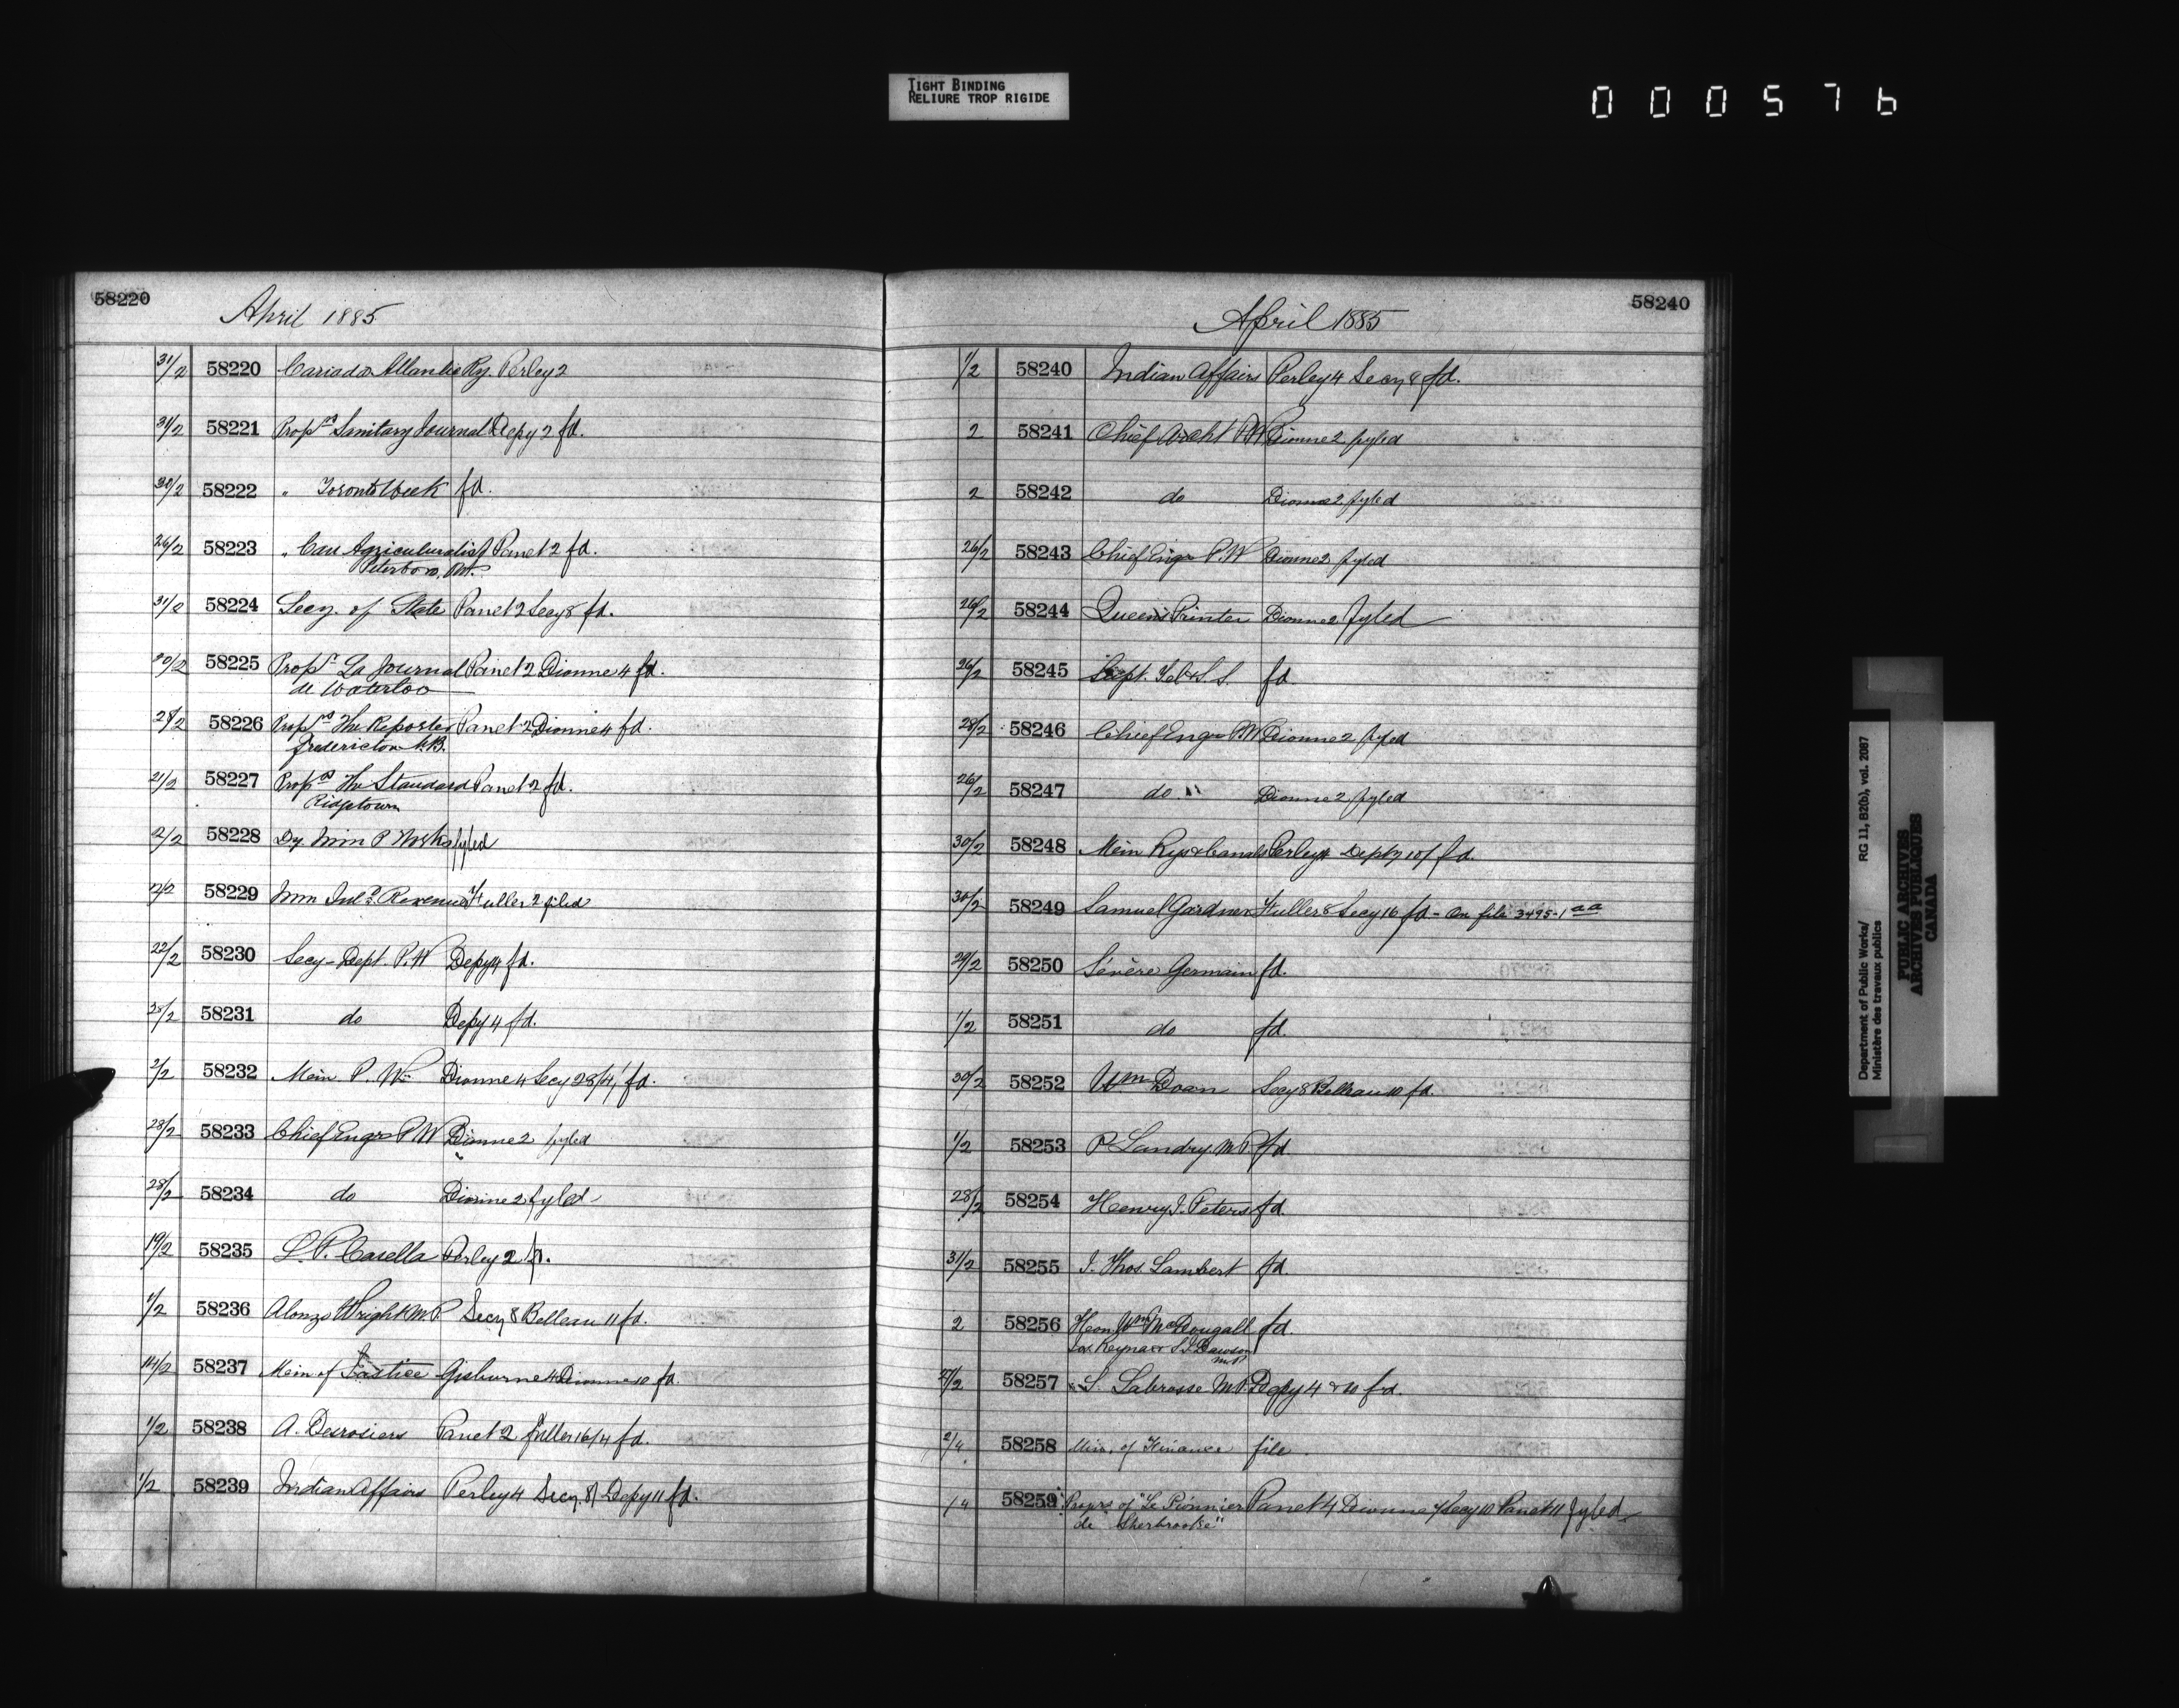 TIGHT BINDING
RELIURE TROP RIGIDE
000576
58220
April 1885
31/2 58220 Canada Atlantic Ry. Perley 2
31/2 58221 Proprs Sanitary Journal Depy 2 fd.
30/2 58222 " Toronto Week fd.
26/2 58223 " Can Agriculturalist Panet 2 fd.
Peterboro, Ont.
31/2 58224 Secy. of State Panet 2 Secy 8 fd.
30/2 58225 Propr La Journal Panet 2 Dionne 4 fd.
de Waterloo
28/2 58226 Proprs The Reporter Panet 2 Dionne 4 fd.
Fredericton N.B.
21/2 58227 Proprs The Standard Panet 2 fd.
Ridgetown
2/2 58228 Dy. Min P Works fyled
2/2 58229 Min Inld Revenue Fuller 2 filed
22/2 58230 Secy - Dept. P.W Depy 4 fd.
28/2 58231 do Depy 4 fd.
2/2 58232 Min. P. Wks Dionne 4 Secy 28/4/ fd.
28/2 58233 Chief Engr P W Dionne 2 fyled
28/2 58234 do Dionne 2 fyled
19/2 58235 L. P. Casella Perley 2 fd.
1/2 58236 Alonzo Wright M.P. Secy 8 Belleau 11 fd.
58237 Min of Justice Gisburne 4 Dionne 10 fd.
1/2 58238 A. Desrosiers Panet 2 Fuller 16/4 fd.
1/2 58239 Indian Affairs Perley 4 Secy 8/ Depy 11 fd.
58240
April 1885
1/2 58240 Indian Affairs Perley 4 Secy 8 fd.
2 58241 Chief Archt P.W Dionne 2 fyled
2 58242 do Dionne 2 fyled
26/2 58243 Chief Engr P.W Dionne 2 fyled
26/2 58244 Queen's Printer Dionne 2 fyled
26/2 58245 Supt. Tel & S. S. fd.
28/2 58246 Chief Engr P.W Dionne 2 fyled
26/2 58247 do " Dionne 2 fyled
30/2 58248 Min Rys & Canals Perley 4 Depty 10/ fd.
30/2 58249 Samuel Gardner Fuller 8 Secy 16 fd - On file 3495-1 aa
29/2 58250 Sévère Germain fd.
1/2 58251 do fd.
30/2 58252 Wm Doan Secy 8 Belleau 10 fd.
1/2 58253 P Landry M.P. fd.
28/2 58254 Henry J. Peters fd.
31/2 58255 J. Thos. Lambert fd.
2 58256 Hon. Wm McDougall fd.
Jos. Reynar S.J. Dawson
M.P.
27/2 58257 S Labrosse M.P. Depy 4 & 10 fd.
2/4 58258 Min. of Finance file.
1 4 58259 Proprs of "Le Pionnier Panet 4 Dionne 7 Secy 10 Panet 11 fyled
de Sherbrooke"
Department of Public Works/
Ministère des travaux publics
RG 11, B2(b), vol. 2087
PUBLIC ARCHIVES
ARCHIVES PUBLIQUES
CANADA